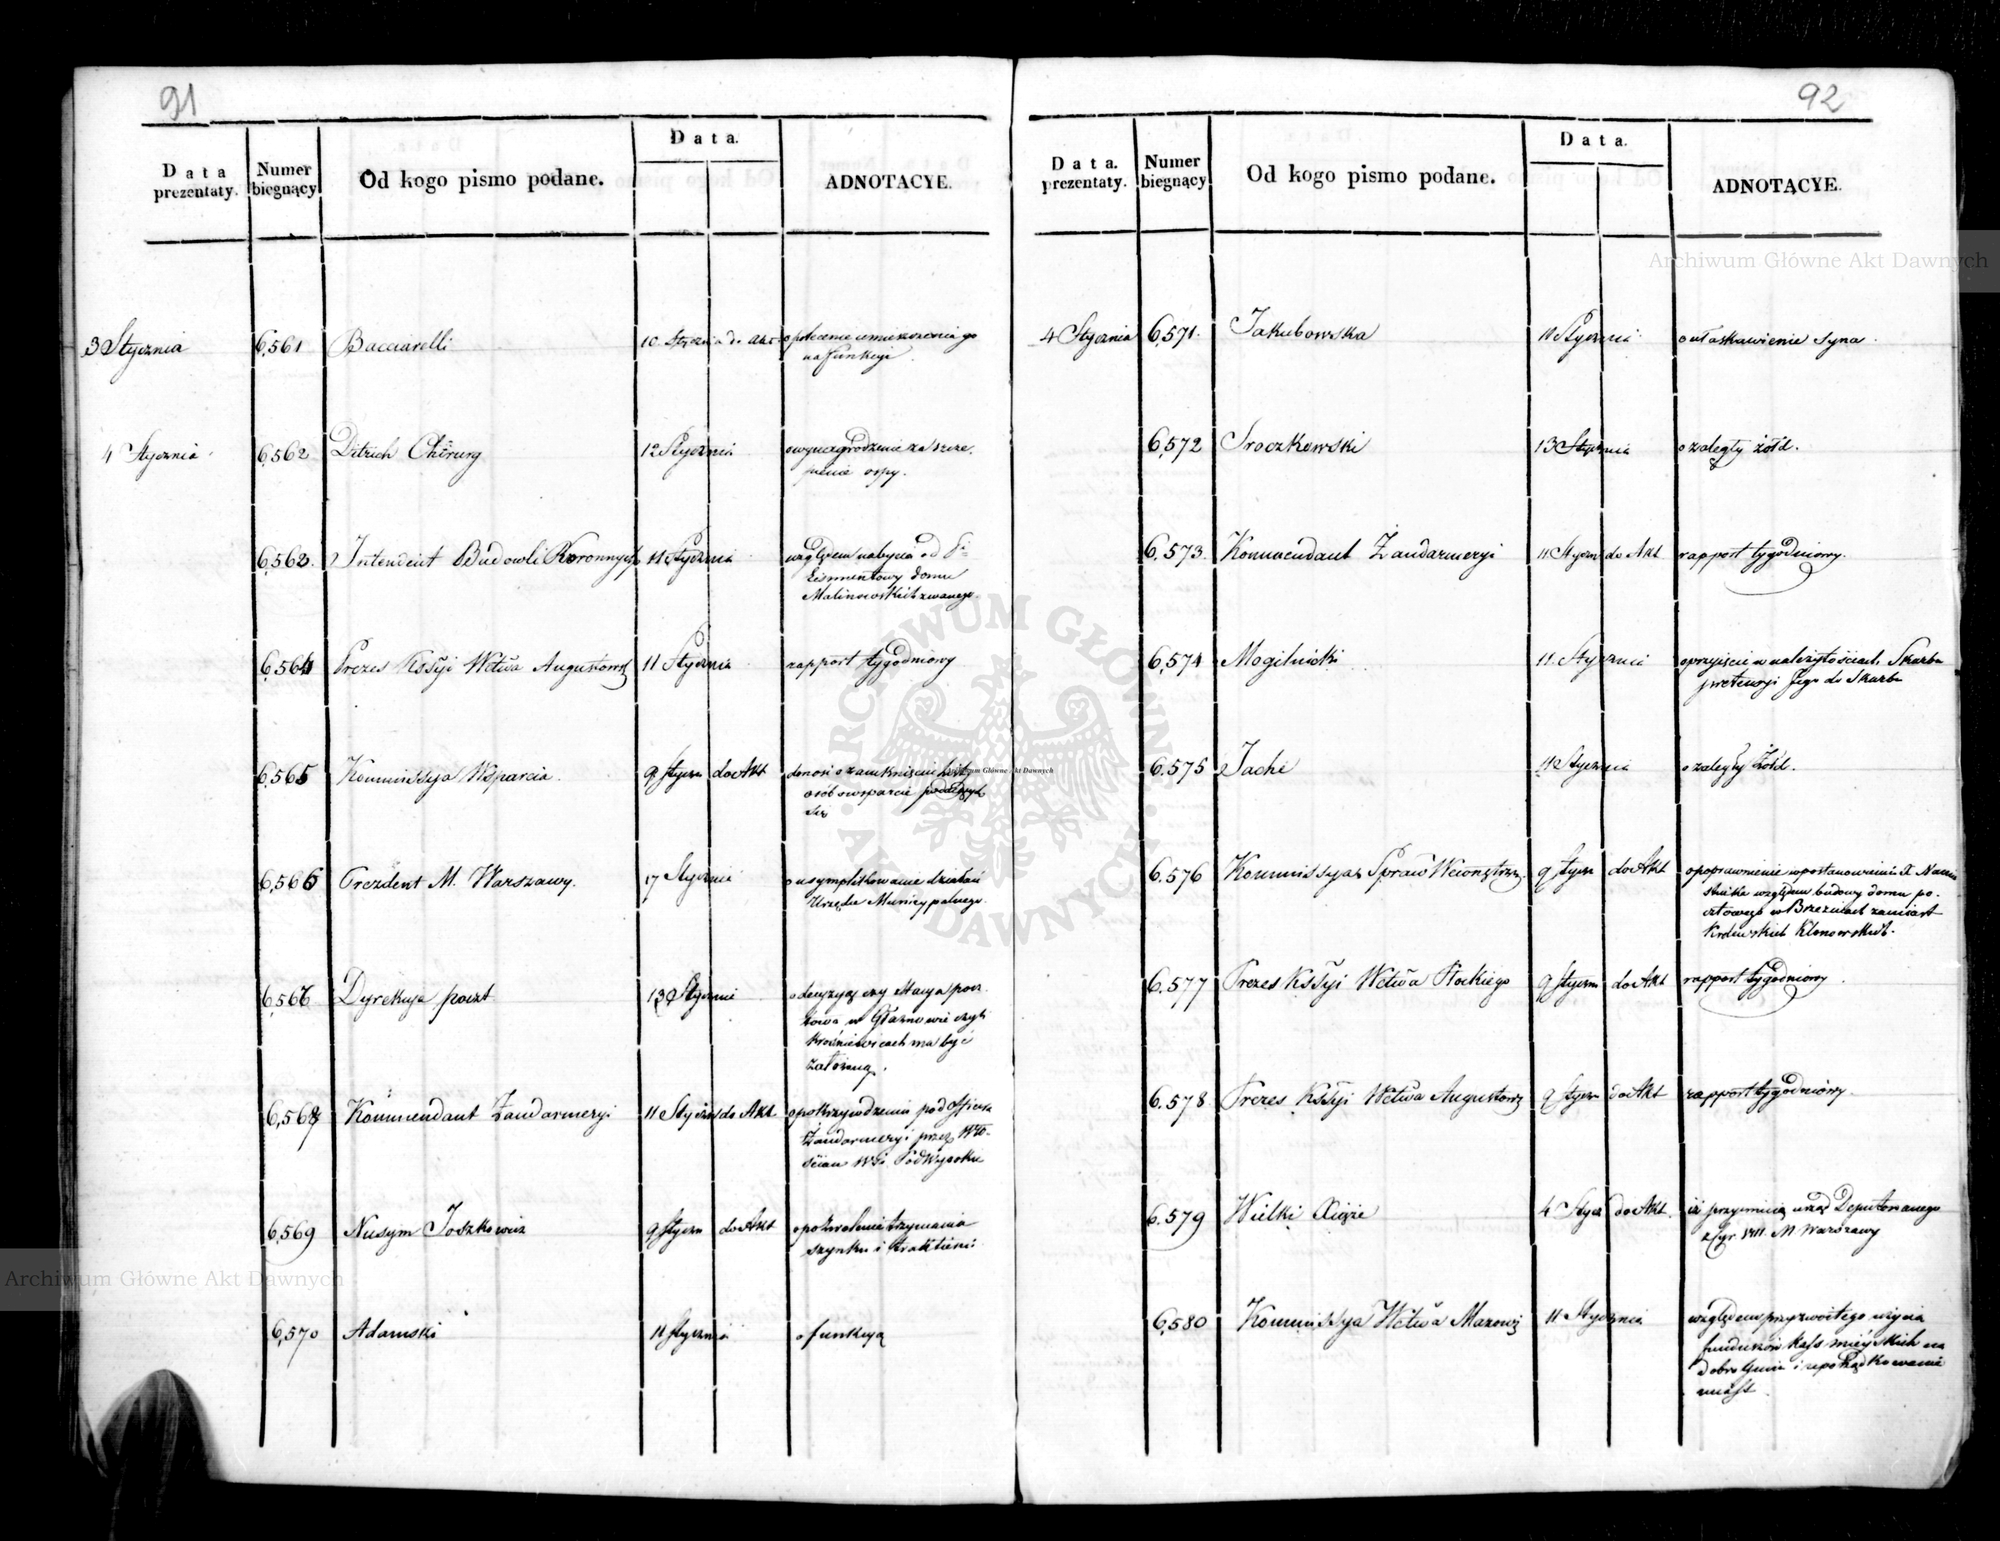 91
Data prezentaty.
Numer biegnący
Od kogo pismo podane.
Data.
ADNOTACYE.
3 Stycznia 6,561 Bacciarelli 10 Stycznia do Akt o polecenie umieszczenia go
na funkcyi
4 Stycznia 6,562 Ditrich Chirurg 12 Stycznia o wynagrodzenie za szcze-
pienie ospy.
6,563. Intendent Budowli Koronnych 11 Stycznia względem nabycia od
domu
Malinowskich zwanego.
6,564 Prezes Kssyi Wctwa Augustows 11 Stycznia rapport tygodniowy
6,565 Kommissya Wsparcia. 9 Styczn do Akt donosi o zamknięciu listy
osób o wsparcie podających
się
6,566 Prezdent M. Warszawy. 17 Stycznia o usymplifikowanie działań
Urzędu Municypalnego.
6,567 Dyrekcya poczt 13 Stycznia o decyzyą czy stacya pocz
towa w Głaznowie czyli
Krośniewicach ma być
założoną.
6,568 Kommendant Żandarmeryi 11 Stycznia do Akt o pokrzywdzeniu podofficera
Żandarmeryi przez Wło-
ścian Wsi Podwysokie
6,569 Nusym Joszkowicz 9 Styczn do Akt o pozwolenie trzymania
szynku i traktierni
6,570 Adamski 11 Stycznia o funkcyą
92
Data. prezentaty.
Numer biegnący
Od kogo pismo podane.
Data.
ADNOTACYE.
4 Stycznia 6,571. Jakubowska 11 Stycznia o ułaskawienie syna.
6,572 Sroczkowski 13 Stycznia o zaległy żółd.
6,573. Kommendant Żandarmeryi 11 Styczn do Akt rapport tygodniowy.
6,574 Mogilnicki 11. Stycznia o przyjęcie w należytościach Skarbu
pretensyi Jego do Skarbu
6,575 Jache 12 Stycznia o zaległy Żółd.
6,576 Kommissya Spraw Wewnętrzn 9 Styczn do Akt o poprawienie w postanowieniu X Namie
stnika względem budowy domu po-
cztowego w Brzezinach zamiast
Królewskich Klonowskich.
6,577 Prezes Kssyi Wctwa Płockiego 9 Styczn do Akt rapport tygodniowy.
6,578 Prezes Kssyi Wctwa Augustows 9 Styczn do Akt rapport tygodniowy.
6,579 Wielki Xiąże 4 Stycz do Akt iż przyimuią urząd Deputowanego
z Cyr. M. Warszawy
6,580 Kommissya Wctwa Mazow 11 Stycznia względem przyzwoitego użycia
funduszów kass mieyskich na
dobro Gmin i uporządkowanie
miast.
Archiwum Główne Akt Dawnych
Archiwum Główne Akt Dawnych
Archiwum Główne Akt Dawnych
ARCHIWUM GŁÓWNE AKT DAWNYCH